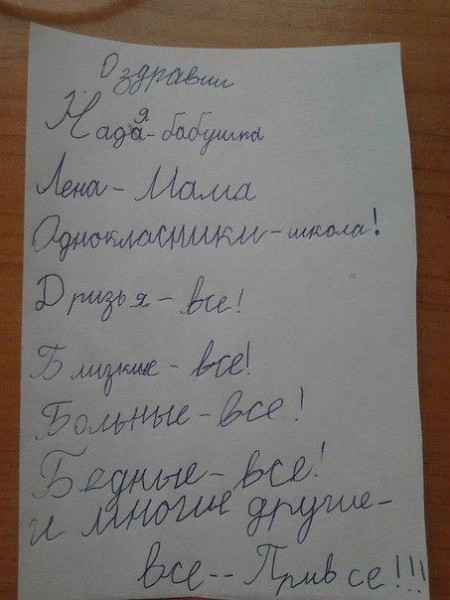 О здравии
Надя-бабушка
Лена-Мама
Однокласники-школа!
Дризья-все!
Близкие-все!
Больные-все!
Бедные-все!
и многие другие-
все--Привсе!!!